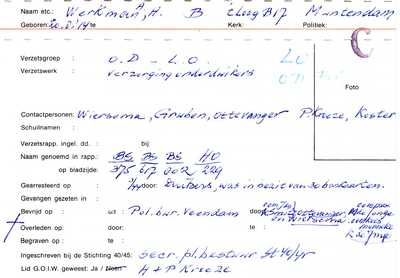 Naam etc.: Werkman, A, H. B Cloeg B17 Muntendam
Geboren: 20.8.'14 te Kerk: Politiek:
C
Verzetsgroep : O.D - L.O. LO
Verzetswerk : Verzorging onderduikers OD
Foto
Contactpersonen: Wiersema, Gruben, Ottevanger P. Kroeze, Koster
Schuilnamen :
Verzetsrapp. ingel. dd. : bij:
Naam genoemd in rapp.: BS BS BS HO
op bladzijde: 375 617 002 229
Gearresteerd op : door: Duitsers, was in bezit van 30 bonkaarten.
Gevangen gezeten in :
Bevrijd op : uit: Pol. bur. Veendam door:
Overleden op: door: en Wiersema
Begraven op : te:
Ingeschreven bij de Stichting 40/45: secr. pl. bestuur St 40/45
Lid G.O.I.W. geweest: Ja / Neen H + P Kroeze